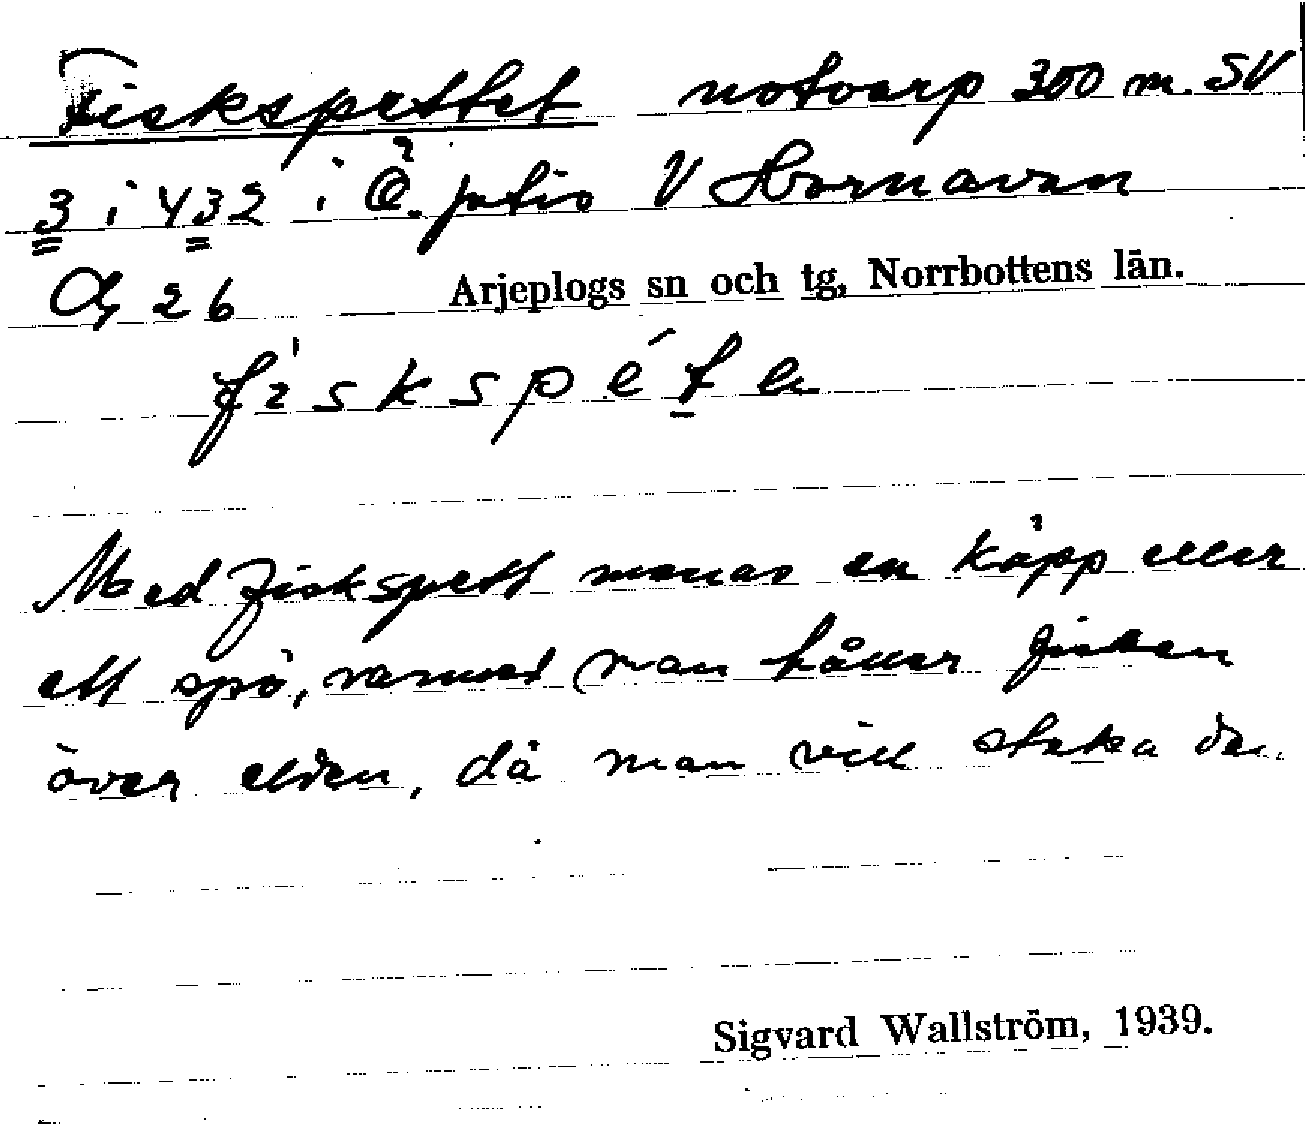 Fiskspettet notvarp 300 m. SV
3 i 432 i Ö. Jutis V Hornavan
Öy 26 Arjeplogs sn och tg, Norrbottens län.
fiskspétn
Med fiskspett menas en käpp eller
ett spö, varmed man håller fisken
över elden, då man vill steka den
Sigvard Wallström, 1939.